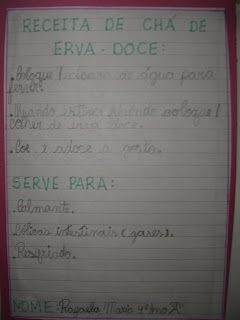 RECEITA DE CHÁ DE
ERVA-DOCE:
.Coloque 1 xícara de água para
ferver.
.Quando estiver fervendo coloque 1
colher de erva doce.
.Coe e adoce a gosto.
SERVE PARA:
.Calmante.
.Cólicas intestinais (gases).
.Resfriado.
NOME: Rafaela Maria 4º Ano "A"